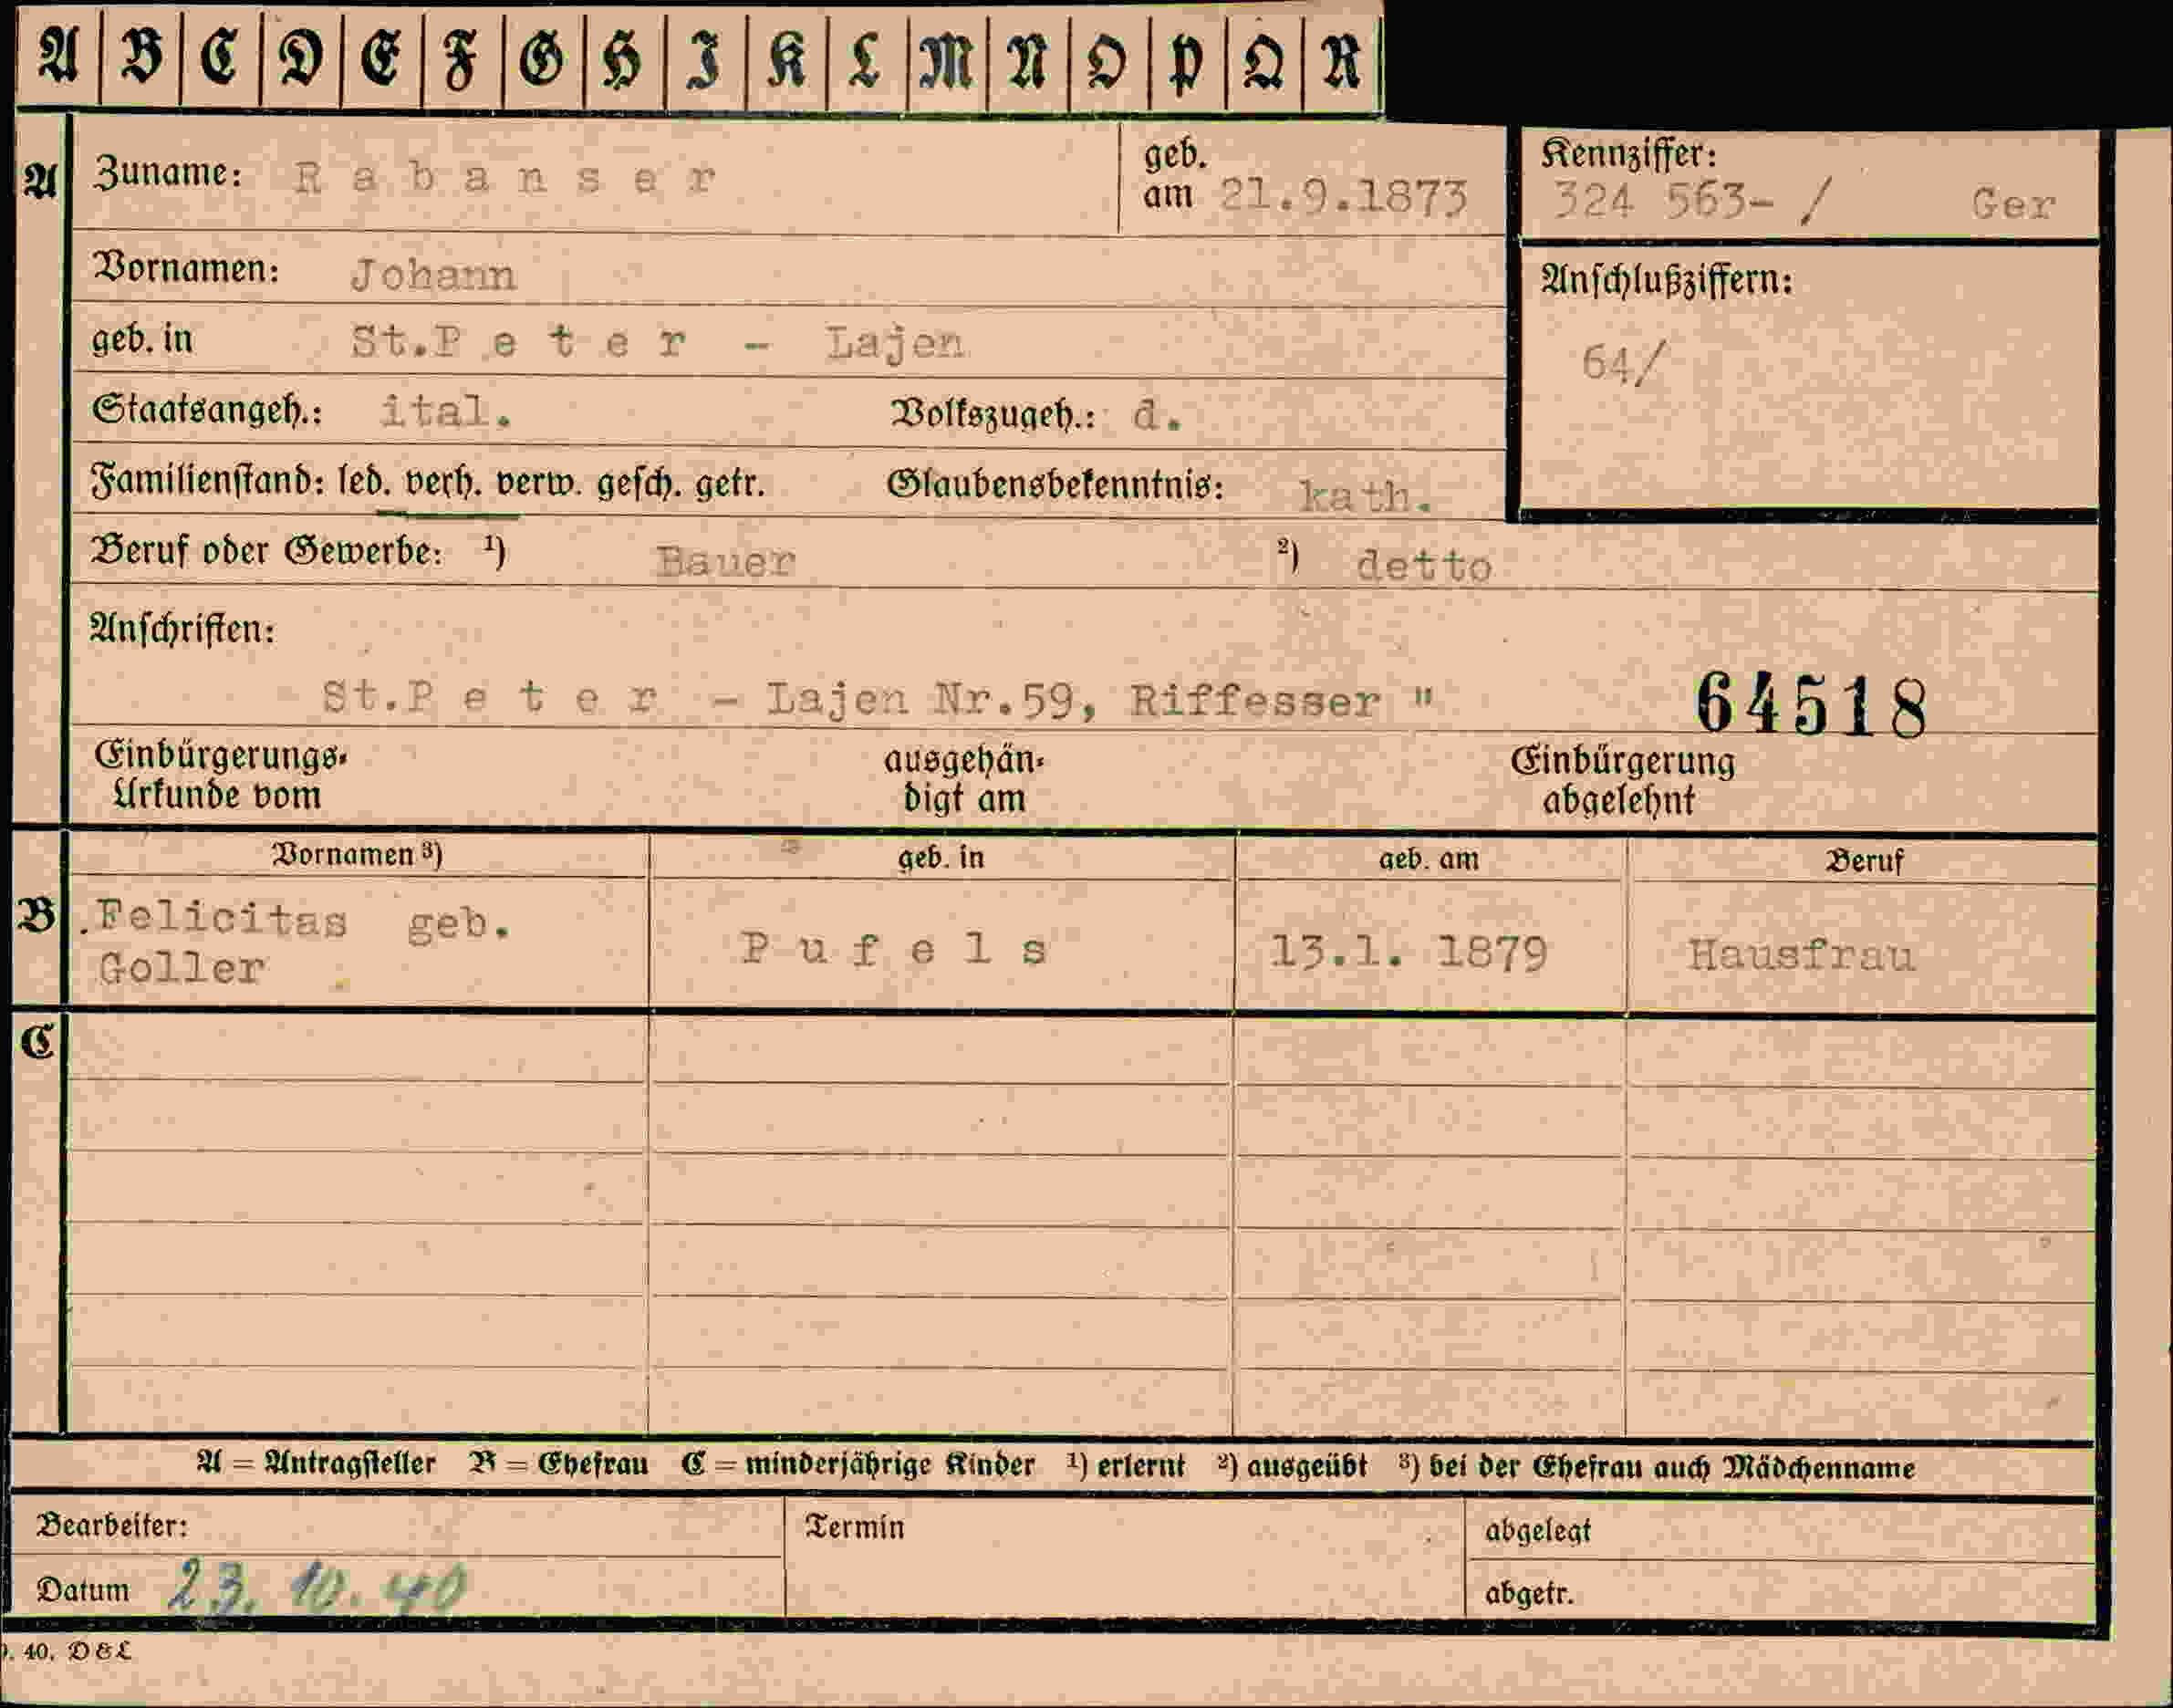 A B C D E F G H I K L M N O P Q R
A Zuname: Rabanser geb. am 21.9.1873
Kennziffer: 324 563- / Ger
Vornamen: Johann
Anschlußziffern: 64/
geb. in St.Peter - Lajen
Staatsangeh.: ital. Volkszugeh.: d.
Familienstand: led. verh. verw. gesch. getr. Glaubensbekenntnis: kath.
Beruf oder Gewerbe: ¹) Bauer ²) detto
Anschriften:
St.Peter - Lajen Nr.59, Riffesser " 64518
Einbürgerungs- ausgehän- Einbürgerung
Urkunde vom digt am abgelehnt
Vornamen ³) geb. in geb. am Beruf
B Felicitas geb.
Goller Pufels 13.1. 1879 Hausfrau
C
A = Antragsteller B = Ehefrau C = minderjährige Kinder ¹) erlernt ²) ausgeübt ³) bei der Ehefrau auch Mädchenname
Bearbeiter: Termin abgelegt
Datum 23. 10. 40 abgetr.
40. D&L